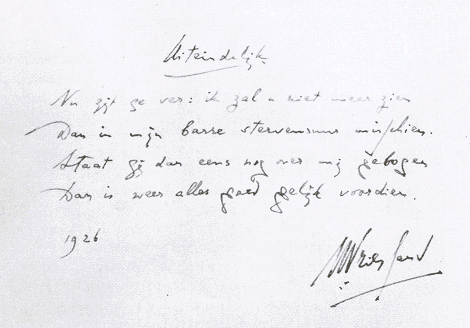 Uiteindelijk
Nu zijt ge ver: ik zal u niet meer zien
Dan in mijn barre stervensuur misschien.
Staat gij dan eens nog over mij gebogen
Dan is weer alles goed gelijk voordien.
1926